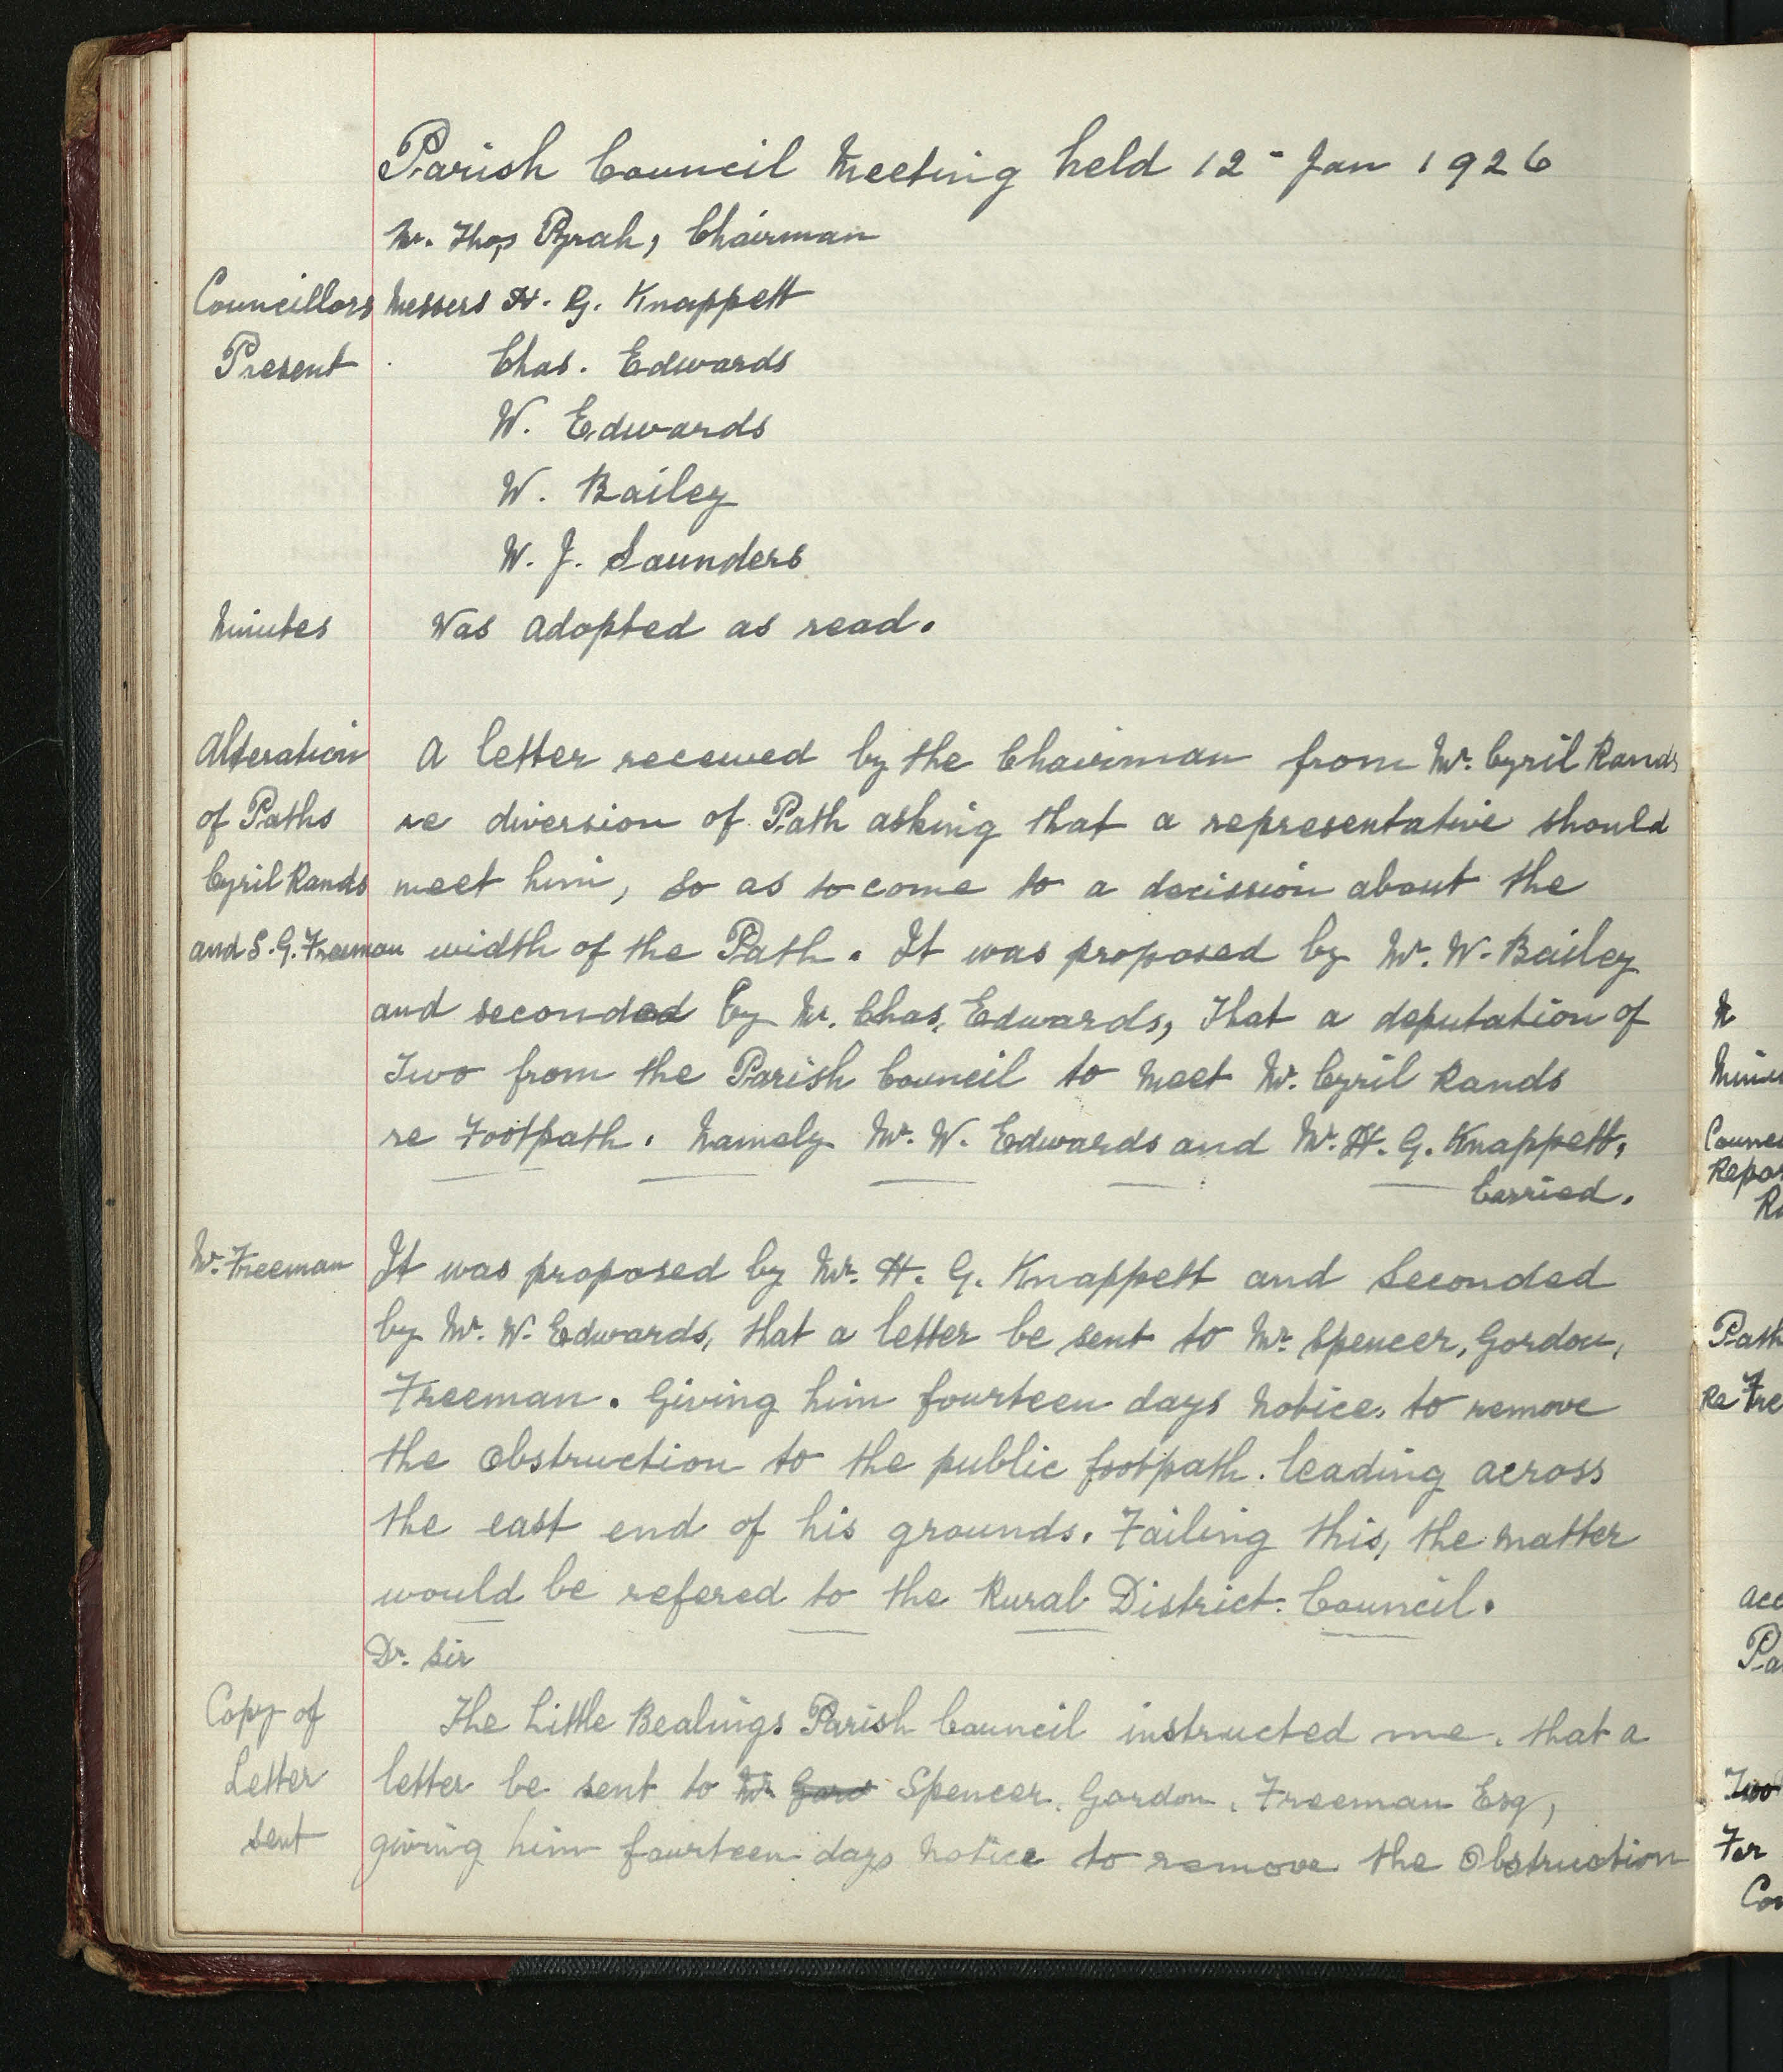 Parish Council Meeting held 12 - Jan 1926
Mr. Thos Pyrah, Chairman
Councillors Messers H. G. Knappett
Present Chas. Edwards
W. Edwards
W. Bailey
W. J. Saunders
Minutes Was adopted as read.
Alteration A letter received by the Chairman from Mr. Cyril Rands
of Paths re diversion of Path asking that a representative should
Cyril Rands meet him, so as to come to a decission about the
and S. G. Freeman width of the Path. It was proposed by Mr. W. Bailey
and seconded by Mr. Chas. Edwards, That a deputation of
Two from the Parish Council to meet Mr. Cyril Rands
re Footpath. Namely Mr. W. Edwards and Mr. H. G. Knappett.
Carried.
Mr. Freeman It was proposed by Mr. H. G. Knappett and Seconded
by Mr. W. Edwards, that a letter be sent to Mr. Spencer, Gordon,
Freeman. Giving him fourteen days notice, to remove
the obstruction to the public footpath. leading across
the east end of his grounds. Failing this, the matter
would be refered to the Rural District Council.
Dr. Sir
Copy of The Little Bealings Parish Council instructed me. that a
Letter letter be sent to Mr Gord Spencer. Gordon. Freeman Esq,
sent giving him fourteen days notice to remove the Obstruction
Path
Re Fre
Pa
Two
For